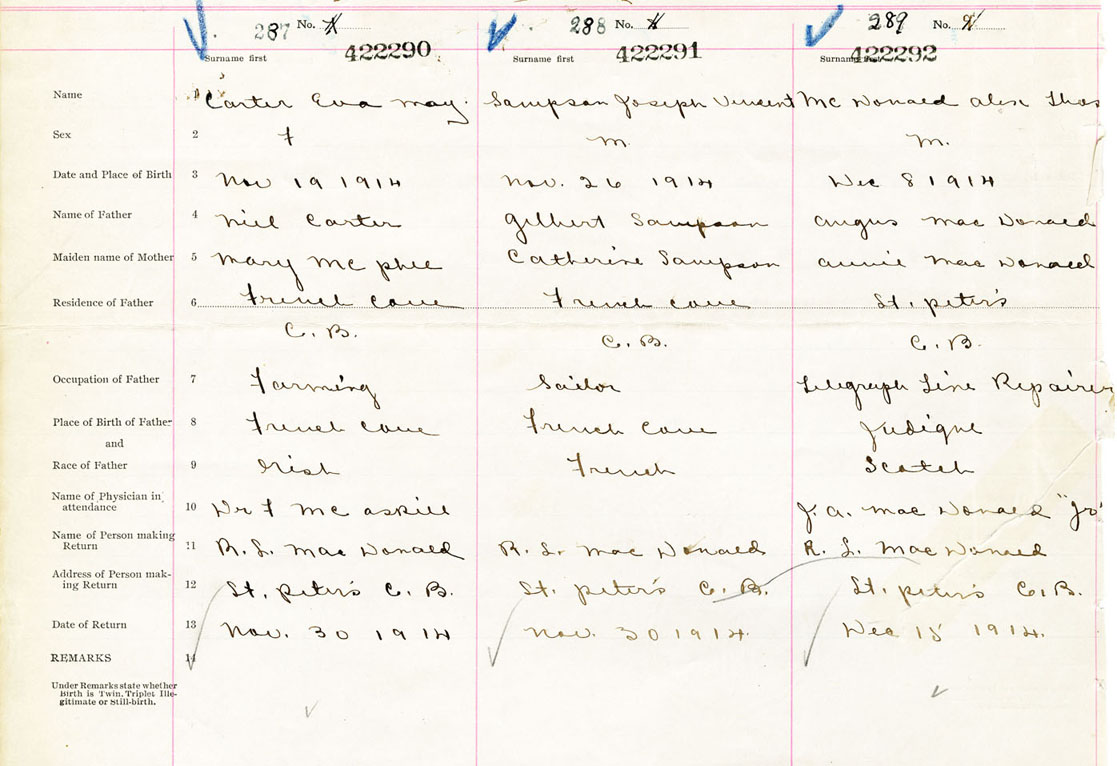 287 No. 288 No. 289 No.
422290 422291 422292
Surname first Surname first Surname first
Name 1 Carter Eva May. Sampson Joseph Vincent Mc Donald Alex Thos
Sex 2 F M. M.
Date and Place of Birth 3 Nov 19 1914 Nov. 26 1914 Dec 8 1914
Name of Father 4 Niel Carter Gilbert Sampson Angus Mac Donald
Maiden name of Mother 5 Mary Mc phee Catherine Sampson Annie Mac Donald
Residence of Father 6 French Cove French Cove St. peter's
C. B. C. B. C. B.
Occupation of Father 7 Farming Sailor Telegraph Line Repairer
Place of Birth of Father 8 French Cove French Cove Judique
and
Race of Father 9 Irish French Scotch
Name of Physician in
attendance 10 Dr F Mc Askill J. A. Mac Donald "Jr"
Name of Person making
Return 11 R. L. Mac Donald R. L. Mac Donald R. L. Mac Donald
Address of Person mak-
ing Return 12 St. peter's C. B. St. peter's C. B. St. peter's C. B.
Date of Return 13 Nov. 30 1914 Nov. 30 1914. Dec 15 1914.
REMARKS 14
Under Remarks state whether
Birth is Twin, Triplet Ille-
gitimate or Still-birth.